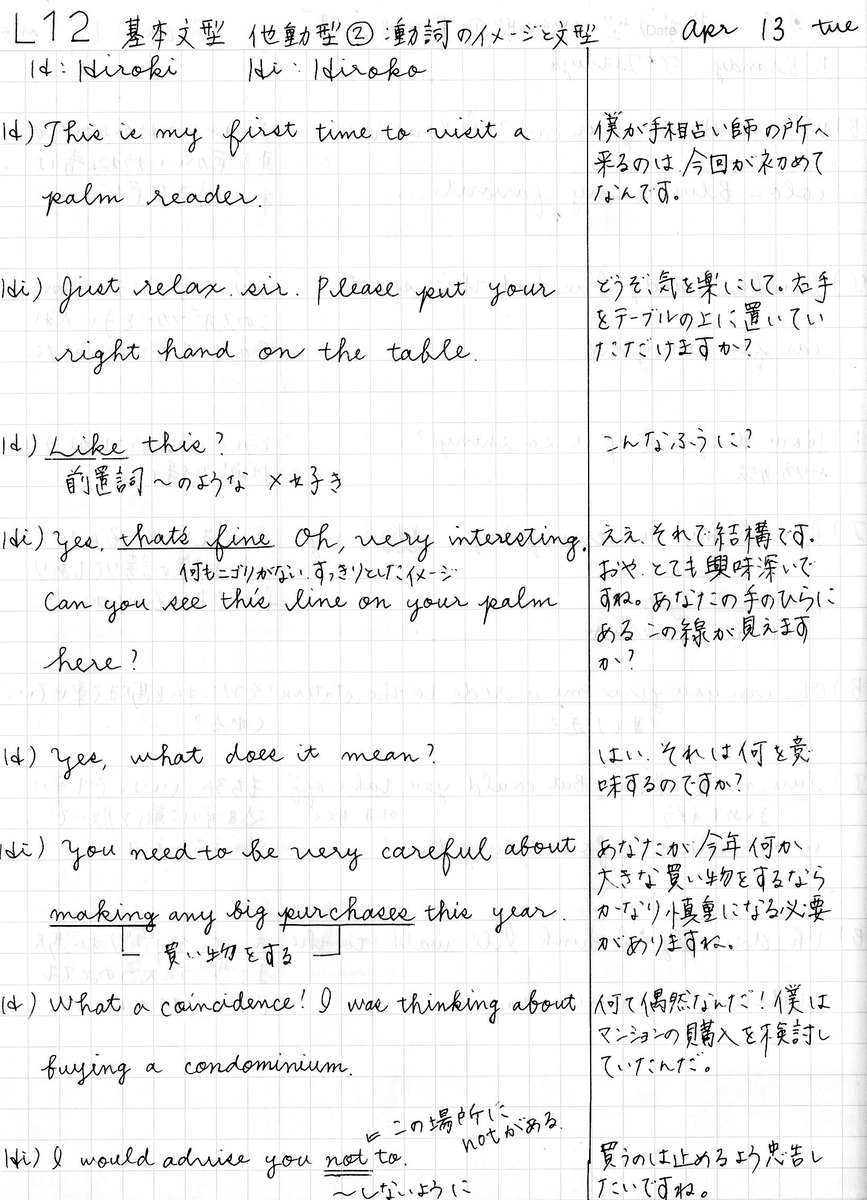 L12 基本文型 他動型② :動詞のイメージと文型 Apr 13 tue
H : Hiroki Hi : Hiroko
H) This is my first time to visit a
palm reader.
僕が手相占い師の所へ
来るのは、今回が初めて
なんです。
Hi) Just relax. sir. Please put your
right hand on the table.
どうぞ、気を楽にして。右手
をテーブルの上に置いてい
ただけますか?
H) Like this?
前置詞 〜のような ×好き
こんなふうに?
Hi) Yes, that's fine Oh, very interesting.
何もニゴリがない、すっきりとしたイメージ
Can you see this line on your palm
here?
ええ、それで結構です。
おや、とても興味深いで
すね。あなたの手のひらに
ある この線が見えます
か?
H) Yes, what does it mean?
はい、それは何を意
味するのですか?
Hi) You need to be very careful about
making any big purchases this year.
買い物をする
あなたが今年何か
大きな買い物をするなら
かなり慎重になる必要
がありますね。
H) What a coincidence! I was thinking about
buying a condominium.
何て偶然なんだ!僕は
マンションの購入を検討し
ていたんだ。
⇐ この場所に
notがある.
Hi) I would advise you not to.
〜しないように
買うのは止めるよう忠告し
たいですね。